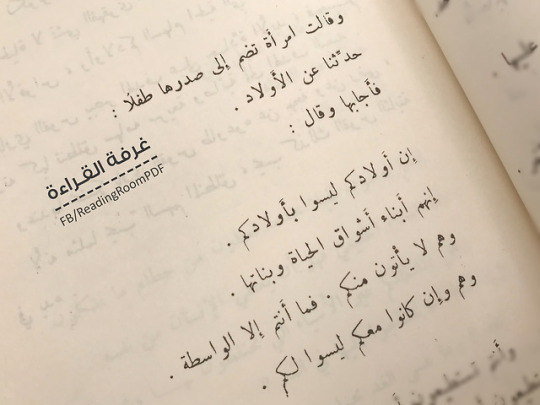 وقالت امرأة تضم إلى صدرها طفلًا :
حدّثنا عن الأولاد .
فأجابها وقال :
غرفة القراءة
FB/ReadingRoomPDF
إن أولادكم ليسوا بأولادكم .
إنهم أبناء أشواق الحياة وبناتها .
وهم لا يأتون منكم . فما أنتم إلا الواسطة .
وهم وإن كانوا معكم ليسوا لكم .
عليها .